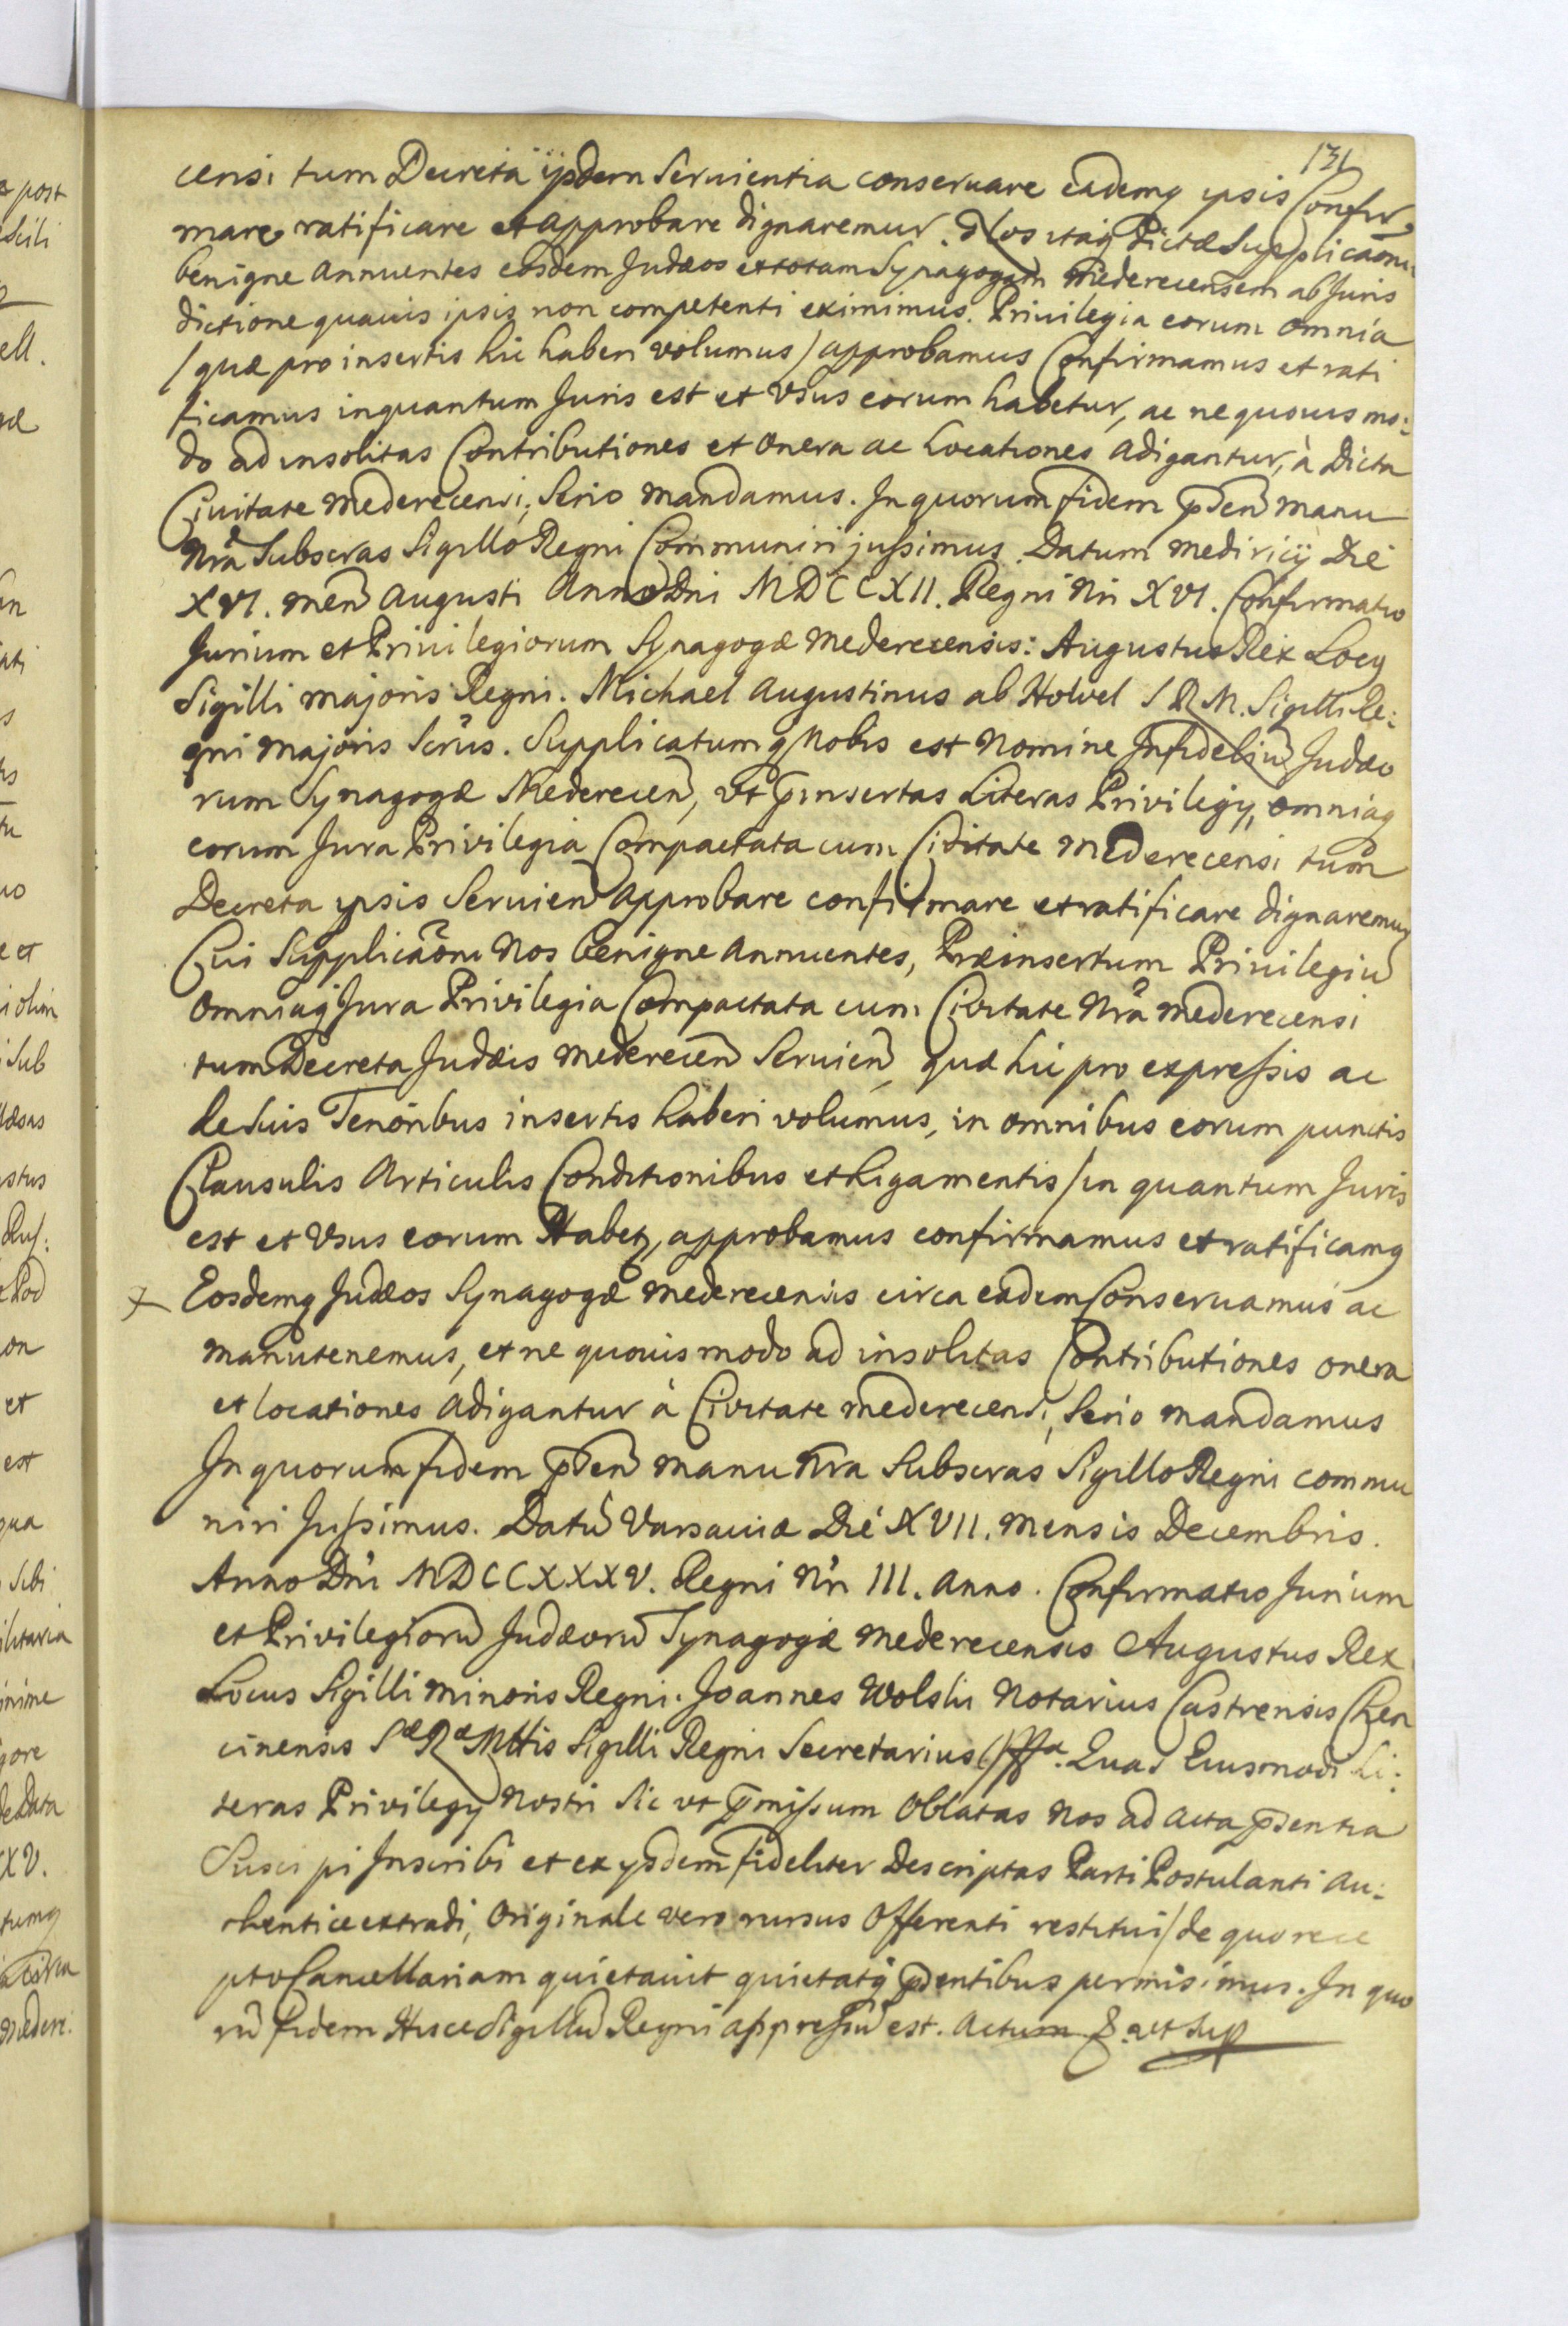 131
censi tum Decreta ijsdem Seruientia conseruare eademq ipsis Confir
mare ratificare et approbare dignaremur. Nos itaq Dictæ Supplicaõni
benigne Annuentes eosdem Judæos et totam Synagogam Mederecensem ab Juris
dictione quauis ipsis non competenti eximimus. Priuilegia eorum omnia
/quæ pro insertis hic haberi volumus/ approbamus Confirmamus et rati
ficamus inquantum Juris est et Vsus eorum habetur, ac ne quouis mo:
do ad insolitas Contributiones et Onera ac Locationes adigantur, à Dicta
Ciuitate Mederecensi, Serio mandamus. In quorum fidem p̃sen manu
Nrã Subscras Sigillo Regni Communiri jussimus. Datum Mediricij Die
XVI. Men Augusti Anno Dni MDCCXII. Regni Nri XVI. Confirmatio
Jurium et Priuilegiorum Synagogæ Mederecensis: Augustus Rex Locq
Sigilli majoris Regni. Michael Augustinus ab Holvel S R M. Sigilli Re:
gni Majoris Scrũs. Supplicatumq Nobis est Nomine Infideliũ Judæo
rum Synagogæ Mederecen, vt p̃insertas Literas Privilegij, omniaq
eorum Jura Privilegia Compactata cum Civitate Mederecensi tum
Decreta ipsis Seruien approbare confirmare et ratificare dignaremur
Cui Supplicaõni Nos benigne Annuentes, Præinsertum Priuilegiũ
Omniaq Jura Privilegia Compactata cum Civitate Nrã Mederecensi
tum Decreta Judæis Mederecen Seruien, quæ hic pro expressis ac
de suis Tenoribus insertis haberi volumus, in omnibus eorum punctis
Clausulis Articulis Conditionibus et Ligamentis /in quantum Juris
est et Vsus eorum Habetz, approbamus confirmamus et ratificamq
Eosdemq Judæos Synagogæ Mederecensis circa eadem Conseruamus ac
manutenemus, et ne quouis modo ad insolitas Contributiones onera
et locationes adigantur à Civitate Mederecensi, Serio mandamus
In quorum fidem p̃sen manu Nra Subscras Sigillo Regni commu
niri Jussimus. Datũ Varsauiæ Die XVII. Mensis Decembris.
Anno Dni MDCCXXXV. Regni Nri III. Anno. Confirmatio Jurium
et Privilegiorũ Judæorũ Synagogæ Mederecensis Augustus Rex
Locus Sigilli Minoris Regni. Joannes Wolski Notarius Castrensis Chen
cinensis Sæ Ræ Mttis Sigilli Regni Secretarius. Quas Eiusmodi Li:
teras Privilegij Nostri Sic vt p̃missum Oblatas Nos ad Acta p̃sentia
Suscipi Inscribi et ex ijsdem fideliter Descriptas Parti Postulanti Au:
thentice extradi, Originale vero rursus Offerenti restitui /de quo rece
pto Cancellariam quietauit quietatq p̃sentibus permisimus. In quo
rũ fidem Hisce Sigillũ Regni appressũ est. Actum &. ut Sup